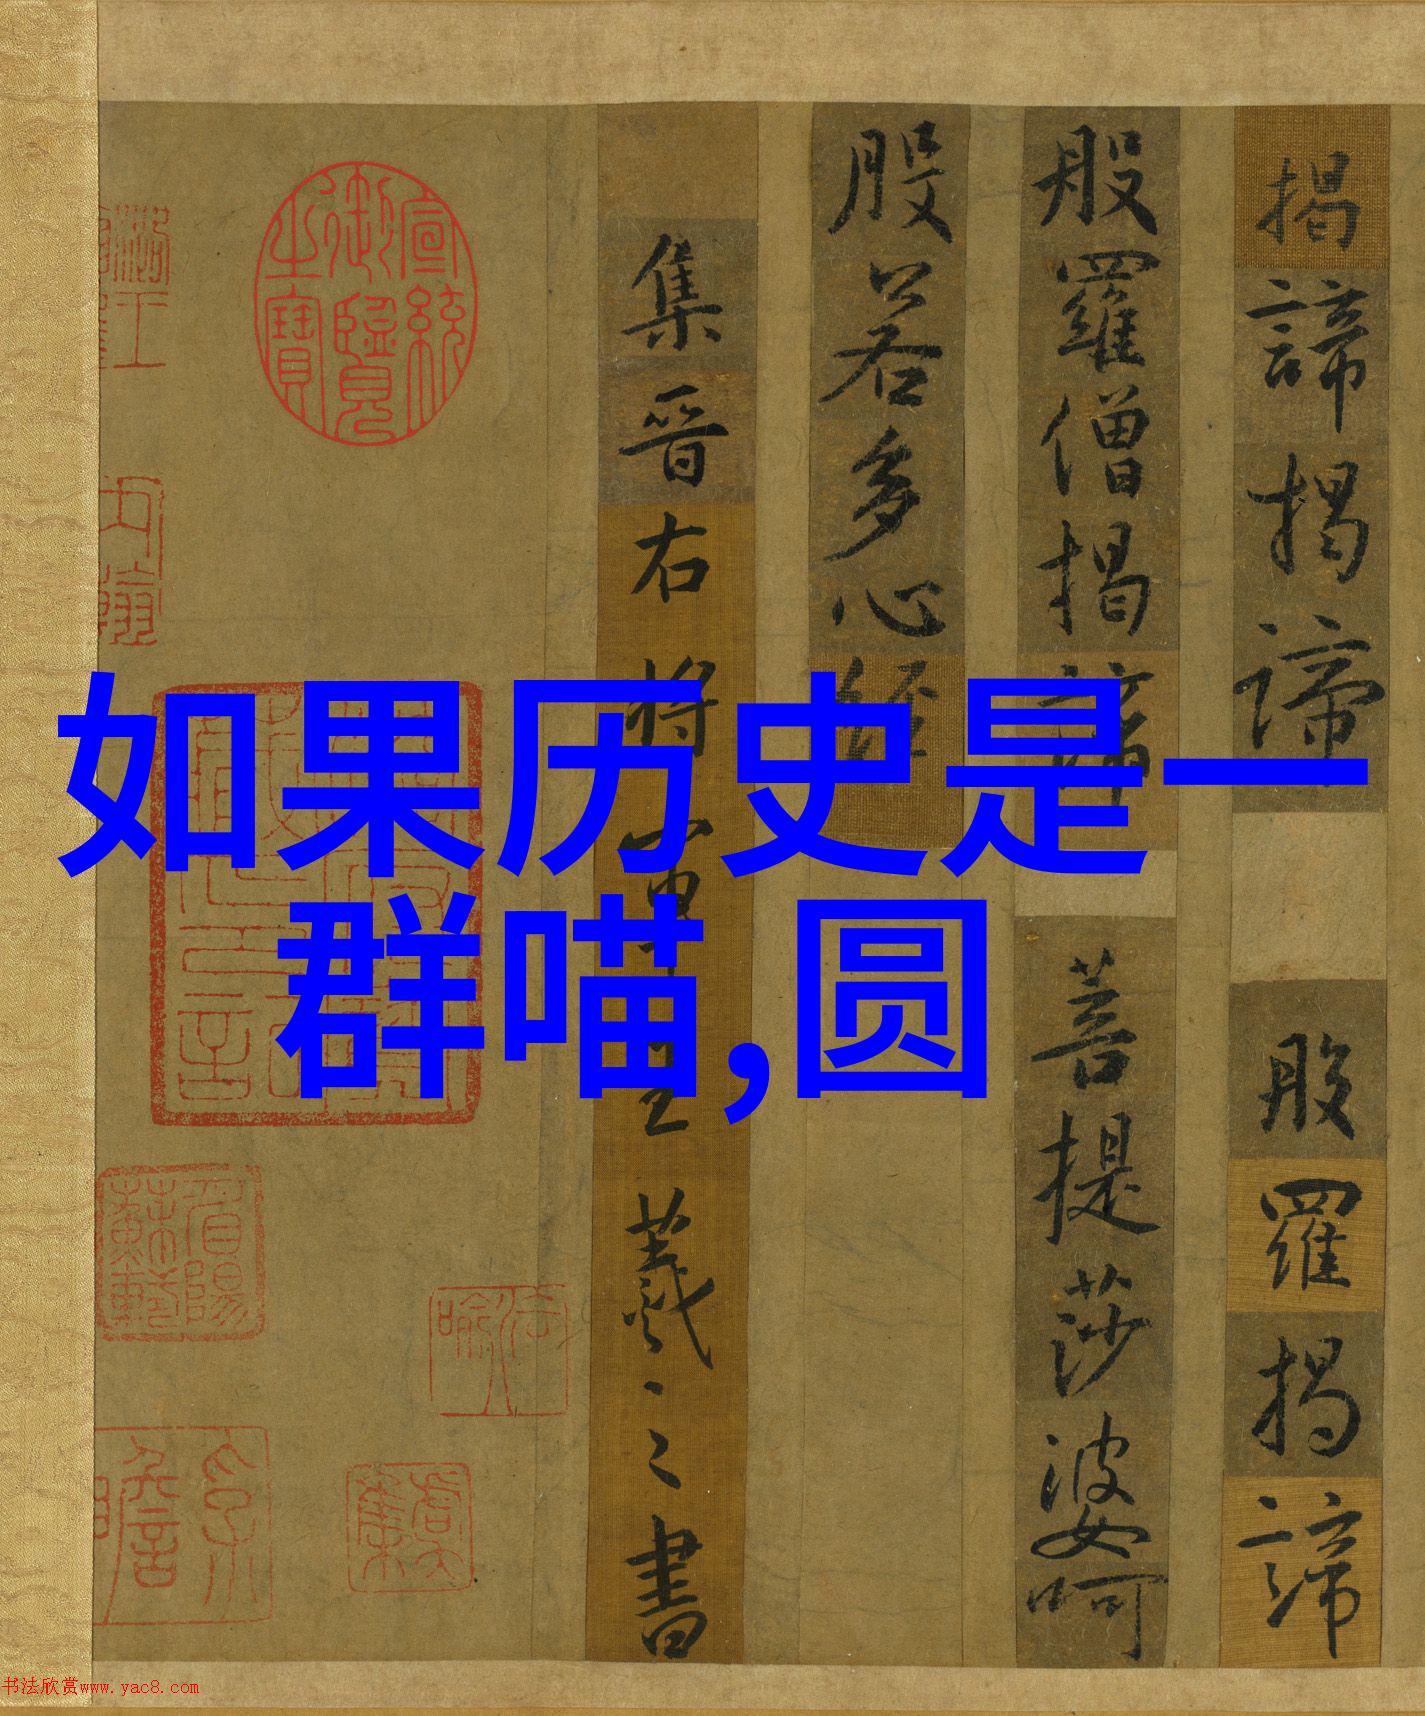 如果历史是一
群喵,圆
揭諦揭諦 般羅揭諦
般羅僧揭諦 菩提莎婆呵
般若多心經
集晉右將軍王羲之書
宣統御覽之寶
书法欣赏www.yac8.com